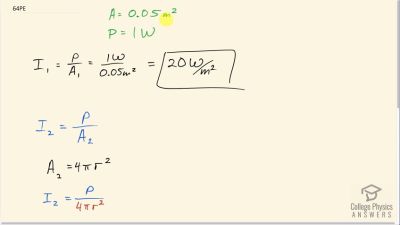 64PE
A = 0.05 m²
P = 1 W
I₁ = P/A₁ = 1W/0.05m² = 20 W/m²
I₂ = P/A₂
A₂ = 4πr²
I₂ = P/4πr²
College Physics
ANSWERS